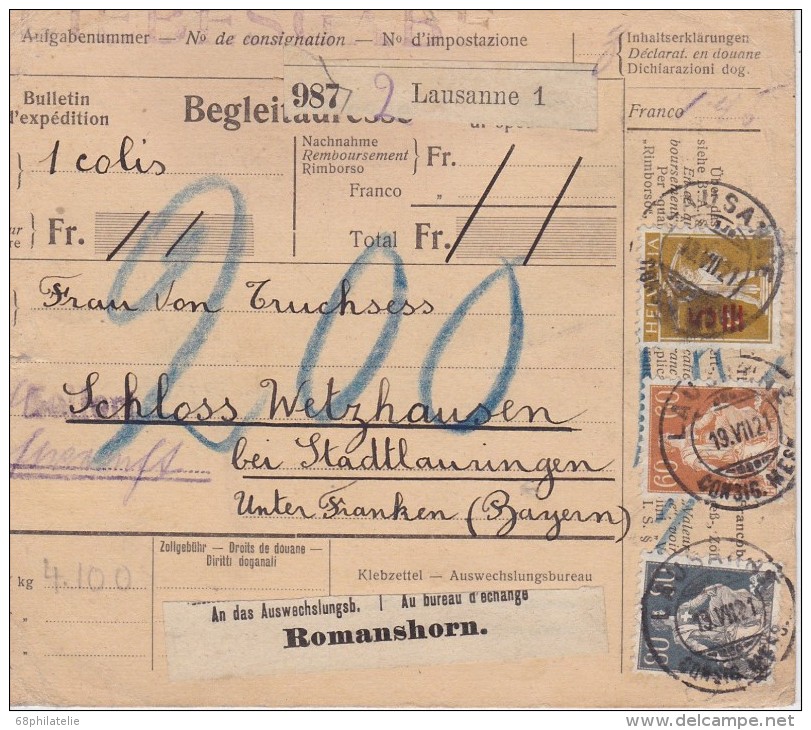 Aufgabenummer No de consignation — No d'impostazione
Inhaltserklärungen
Déclarat. en douane
Dichiarazioni dog.
987 2 Lausanne 1
Bulletin
d'expédition
Begleitadresse
Franco
1 colis
Nachnahme
Remboursement
Rimborso
Fr.
Franco "
Fr.
Total Fr.
HELVETIA
Frau von Truchsess
Schloss Wetzhausen
bei Stadtlauringen
Unter Franken (Bayern)
200
60 60
LAUSANNE
19.VII.21
CONSIG. MESS.
Zollgebühr — Droits de douane —
Diritti doganali
kg 4.100
"
"
Klebzettel — Auswechslungsbureau
An das Auswechslungsb. | Au bureau d'échange
Romanshorn.
90 90
LAUSANNE
19.VII.21
CONSIG. MESS.
68philatelie
www.delcampe.net